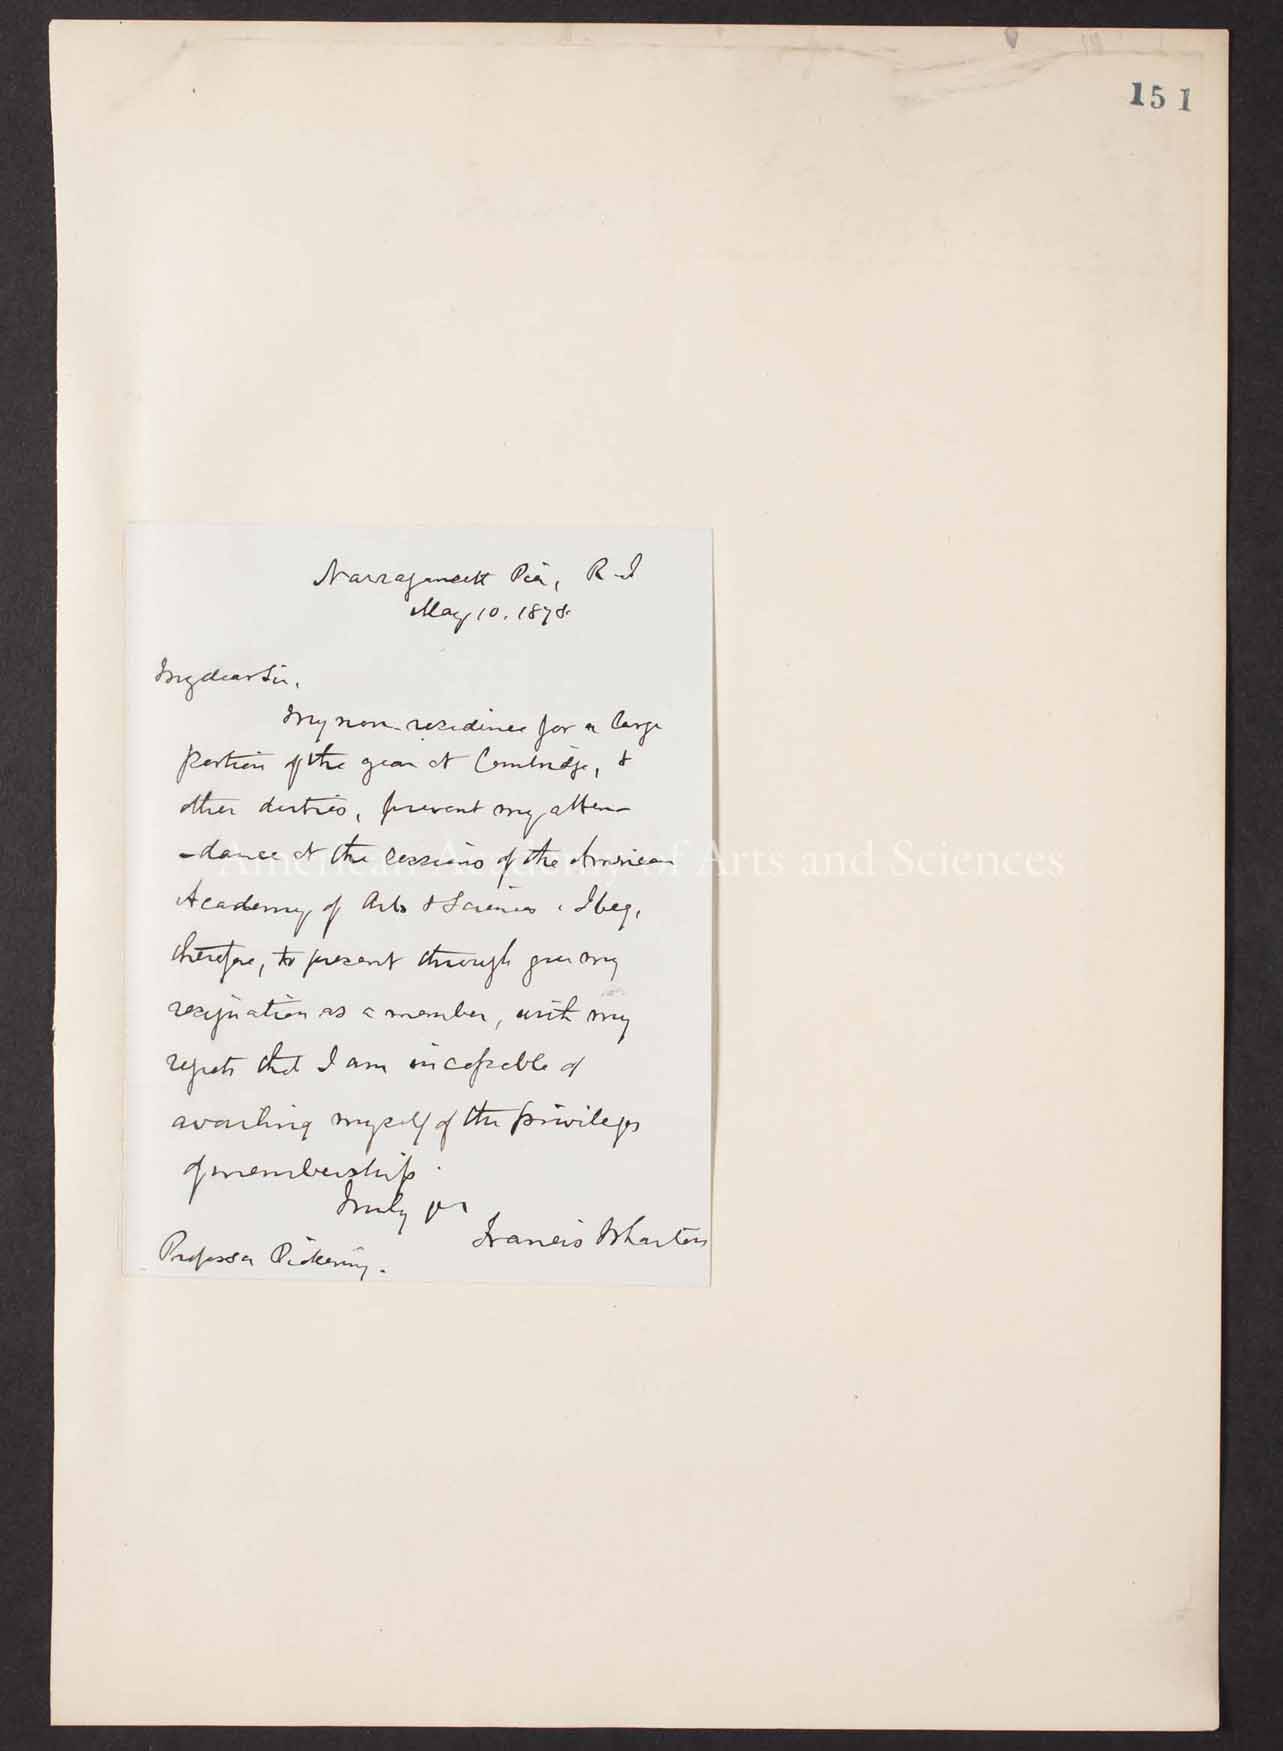 151
Narragansett Pier, R-I
May 10. 1878.
My dear Sir,
My non-residence for a large
portion of the year at Cambridge, &
other duties, prevent my atten-
-dance at the sessions of the American
Academy of Arts & Sciences. I beg,
therefore, to present through you my
resignation as a member, with my
regrets that I am incapable of
availing myself of the privileges
of membership.
Truly yrs
Francis Wharton
Professor Pickering.
American Academy of Arts and Sciences